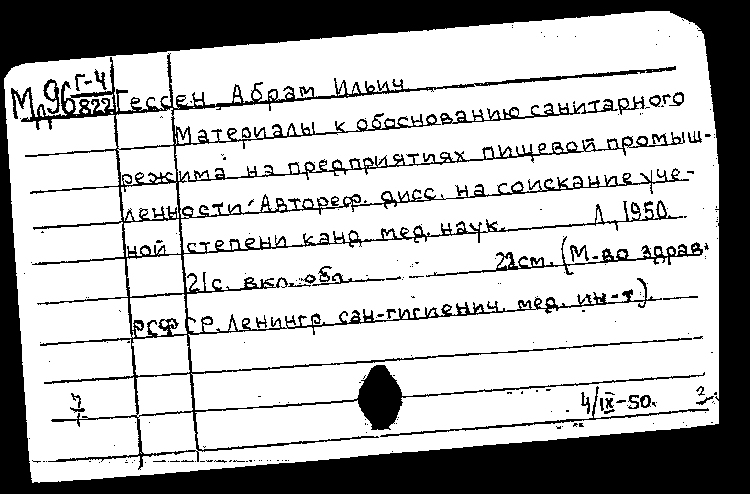 Г-4
Мд96 822 Гессен, Абрам Ильич
Материалы к обоснованию санитарного
режима на предприятиях пищевой промыш-
ленности. Автореф. дисс. на соискание уче-
ной степени канд. мед. наук. Л., 1950
21с. вкл. обл. 22см. (М-во здрав.
РСФСР. Ленингр. сан-гигиенич. мед. ин-т).
4/IX-50.